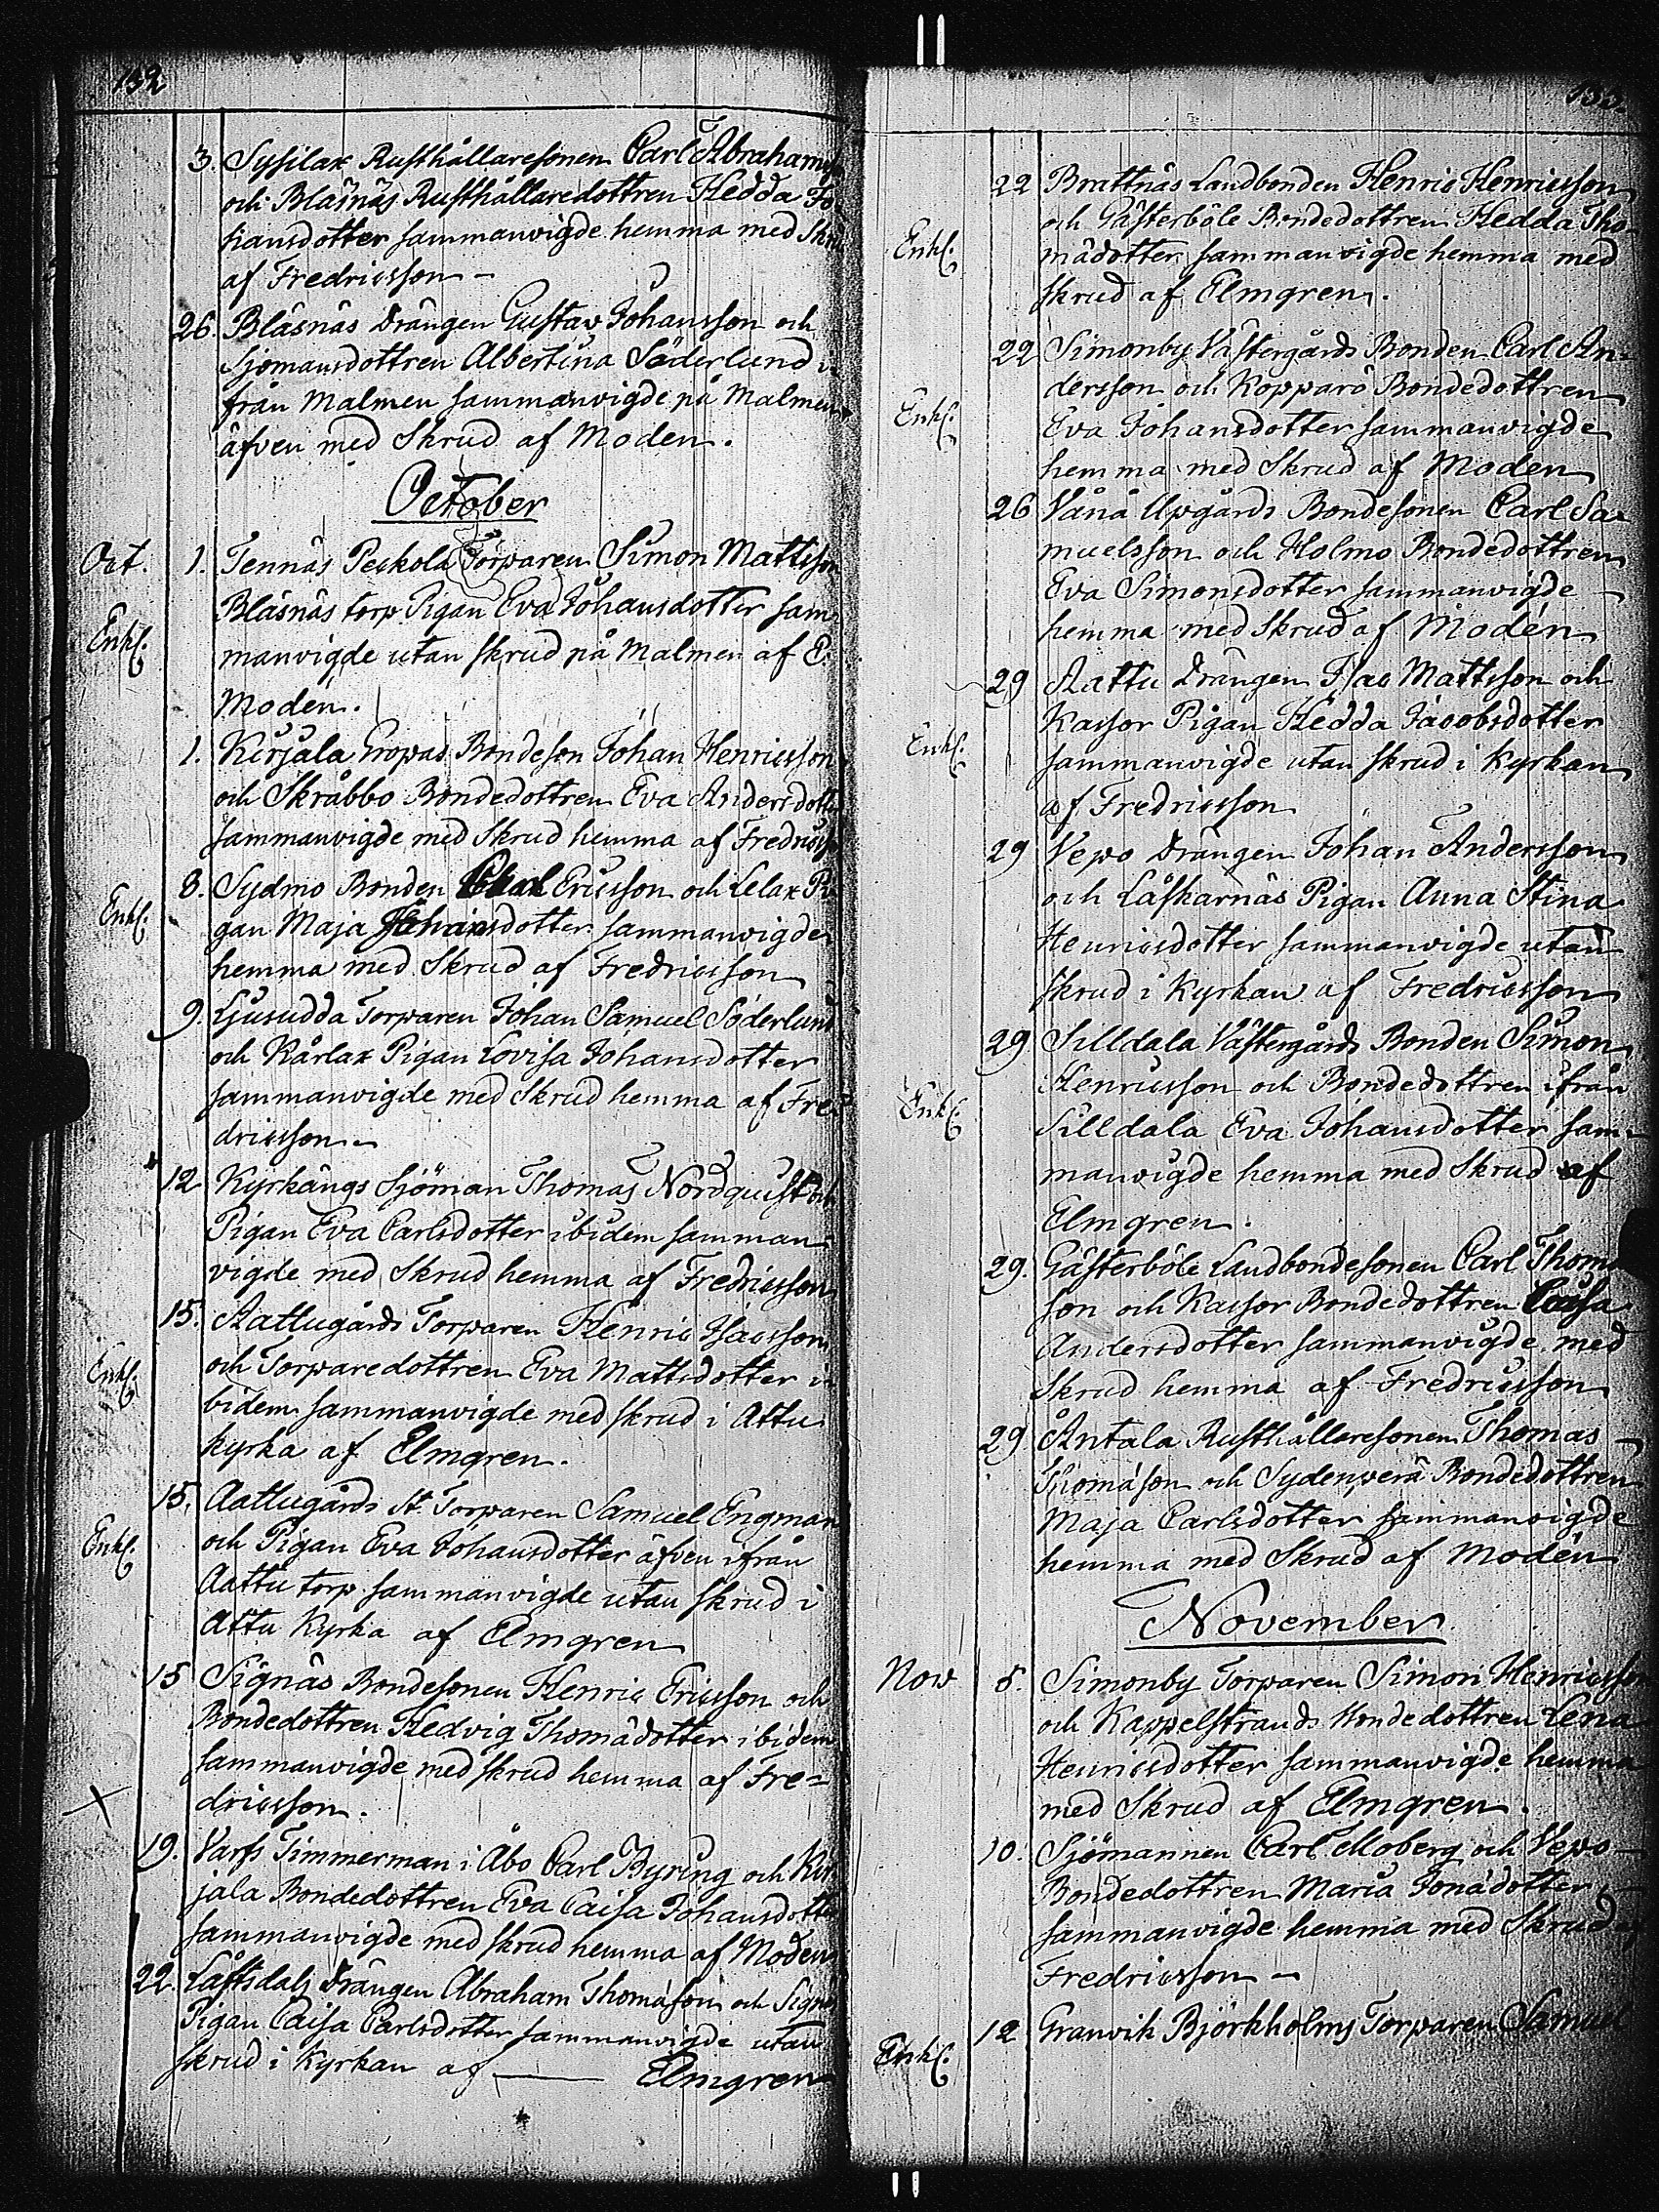 132
3. Sysilax Rusthållaresonen Carl Abrahams
och Bläsnäs Rusthållaredottren Hedda Jo
hansdotter sammanvigde hemma med Skrud
af Fredricsson
26. Bläsnäs Drängen Gustav Johansson och
Sjömansdottren Albertina Söderlund i
från Malmen sammanvigde på Malmen
äfven med Skrud af Moden.
October
Oct. 1. Tennäs Peckola Torparen Simon Mattsson
Bläsnäs torp Pigan Eva Johansdotter sam
Enkl. manvigde utan skrud på Malmen af E.
Modén.
1. Kirjala Bondeson Johan Henricsson
och Skråbbo Bondedottren Eva Andersdotter
sammanvigde med Skrud hemma af Fredricsson
8. Sydmo Bonden Ericsson och Lelax Pi
Enkl. gan Maja Johansdotter sammanvigde
hemma med Skrud af Fredricsson
9. Ljusudda Torparen Johan Samuel Söderlund
och Kårlax Pigan Lovisa Johansdotter
sammanvigde med Skrud hemma af Fre
dricsson
12 Kyrkängs Sjöman Thomas Nordquist och
Pigan Eva Carlsdotter ibidem samman
vigde med Skrud hemma af Fredricsson
15. Aattugårds Torparen Henric Isacsson
Enkl. och Torparedottren Eva Mattsdotter i
bidem sammanvigde med skrud i Attu
kyrka af Elmgren.
15. Aattugårds St. Torparen Samuel Engman
Enkl. och Pigan Eva Johansdotter äfven ifrån
Aattu torp sammanvigde utan skrud i
Attu Kyrka af Elmgren
15 Signäs Bondesonen Henric Ericsson och
Bondedottren Hedvig Thomädotter ibidem
sammanvigde med skrud hemma af Fre=
dricsson.
19. Varfs Timmerman i Åbo Carl Byring och Kir
jala Bondedottren Eva Caisa Johansdotter
sammanvigde med skrud hemma af Moden
22. Låftsdals Drängen Abraham Thomäson och Signäs
Pigan Caisa Carlsdotter sammanvigde utan
skrud i Kyrkan af Elmgren
133
22 Brattnäs Landbonden Henric Henricsson
och Gästerböle Bondedottren Hedda Tho-
Enkl. mädotter sammanvigde hemma med
skrud af Elmgren.
22 Simonby Västergårds Bonden Carl An=
dersson och Kopparö Bondedottren
Enkl. Eva Johansdotter sammanvigde
hemma med Skrud af Moden
26 Vånå Upgårds Bondesonen Carl Sa=
muelsson och Holmo Bondedottren
Eva Simonsdotter sammanvigde
hemma med Skrud af Modén
29 Aattu Drängen Isac Mattsson och
Kassor Pigan Hedda Jacobsdotter
Enkl. sammanvigde utan skrud i kyrkan
af Fredricsson
29 Vepo Drängen Johan Andersson
och Låskarnäs Pigan Anna Stina
Henricsdotter sammanvigde utan
skrud i Kyrkan af Fredricsson
29 Silldala Västergårds Bonden Simon
Henricsson och Bondedottren ifrån
Enkl. Silldala Eva Johansdotter sam-
manvigde hemma med Skrud af
Elmgren.
29. Gästerböle Landbondesonen Carl Thomä
son och Kassor Bondedottren Caisa
Andersdotter sammanvigde med
Skrud hemma af Fredricsson
29 Åntala Rusthållaresonen Thomas
Thomäson och Bondedottren
Maja Carlsdotter sammanvigde
hemma med Skrud af Modén
November
Nov 5. Simonby Torparen Simon Henricsson
och Kappelstrands Bondedottren Lena
Henricsdotter sammanvigde hemma
med Skrud af Elmgren.
10. Sjömannen Carl Moberg och Vepo
Bondedottren Maria Jonädotter
sammanvigde hemma med Skrud af
Fredricsson
12 Granvik Björkholms Torparen Samuel
Enkl.